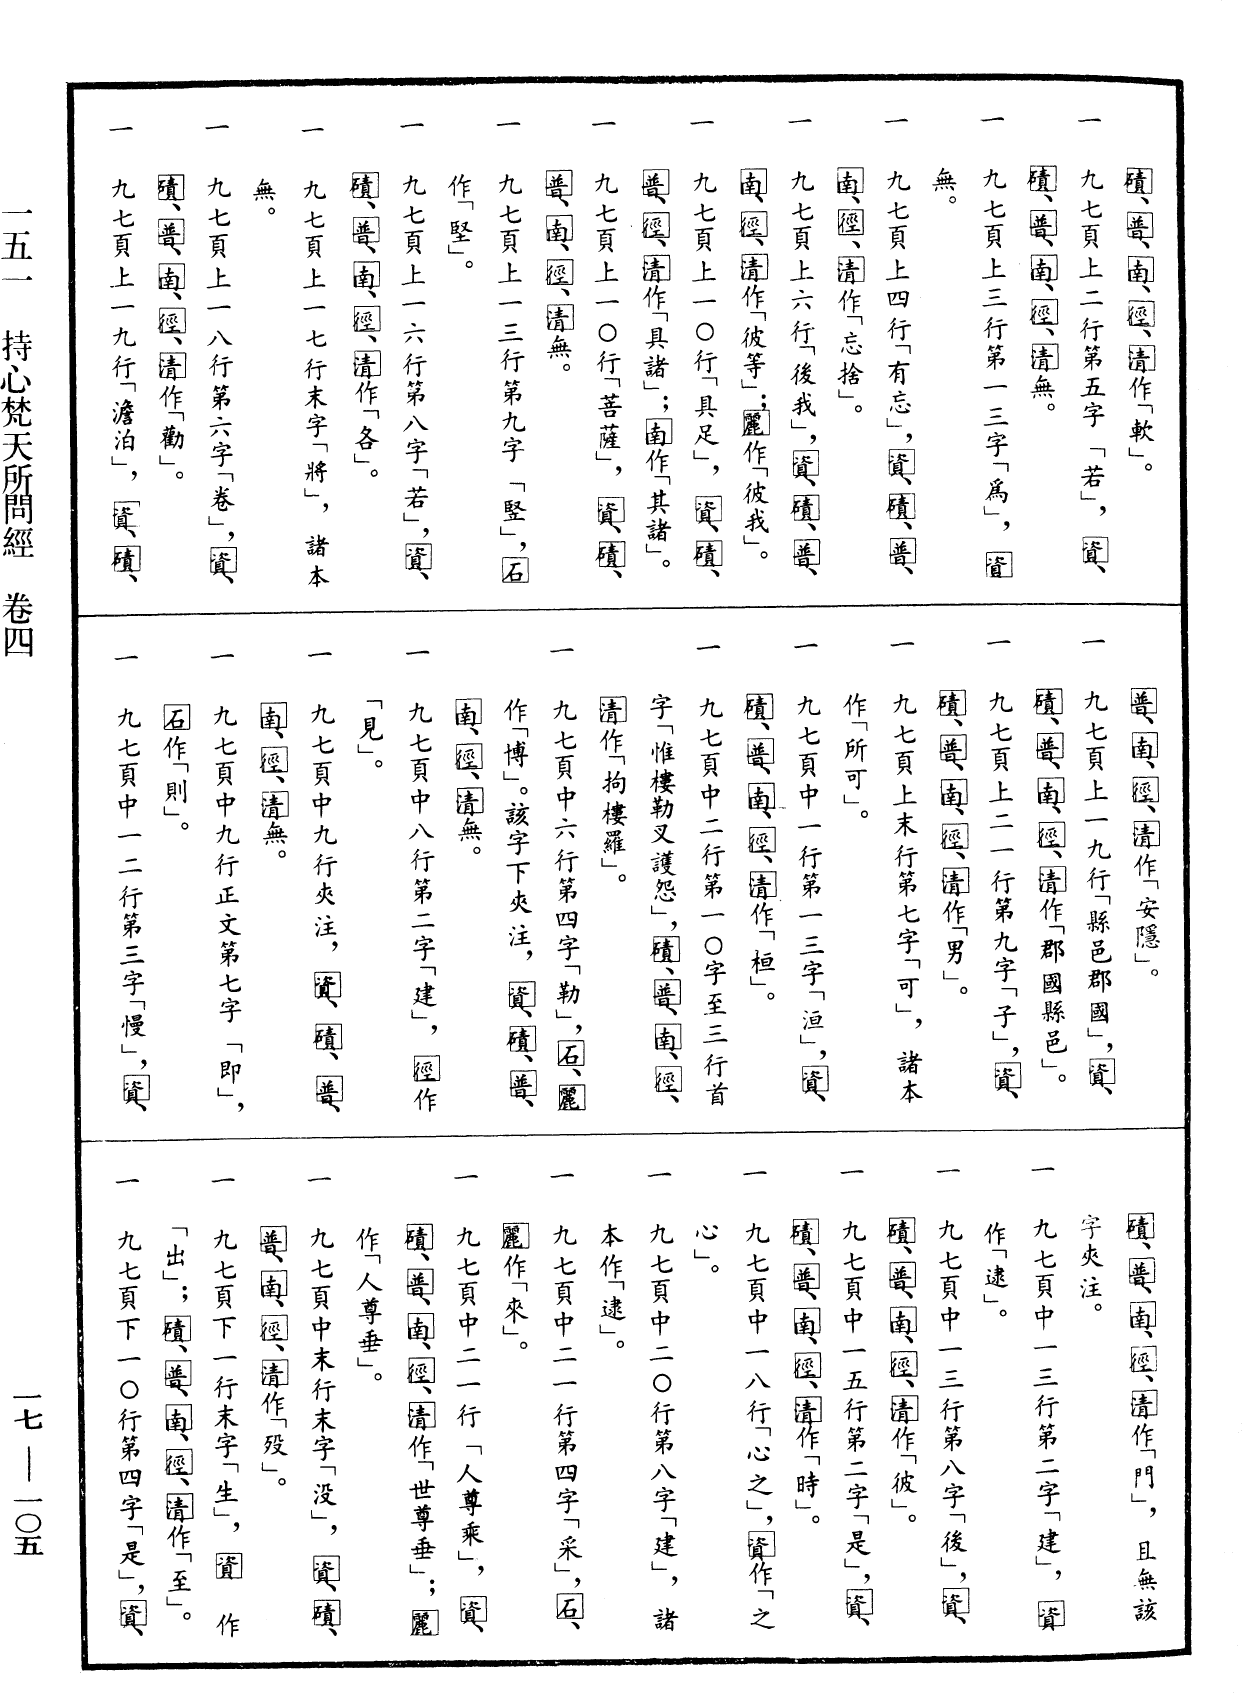 磧、普、南、徑、清作「軟」。
一 九七頁上二行第五字「若」，資、
磧、普、南、徑、清無。
一 九七頁上三行第一三字「爲」，資
無。
一 九七頁上四行「有忘」，資、磧、普、
南、徑、清作「忘捨」。
一 九七頁上六行「後我」，資、磧、普、
南、徑、清作「彼等」；麗作「彼我」。
一 九七頁上一〇行「具足」，資、磧、
普、徑、清作「具諸」；南作「其諸」。
一 九七頁上一〇行「菩薩」，資、磧、
普、南、徑、清無。
一 九七頁上一三行第九字「竪」，石
作「堅」。
一 九七頁上一六行第八字「若」，資、
磧、普、南、徑、清作「各」。
一 九七頁上一七行末字「將」，諸本
無。
一 九七頁上一八行第六字「卷」，資、
磧、普、南、徑、清作「勸」。
一 九七頁上一九行「澹泊」，資、磧、
普、南、徑、清作「安隱」。
一 九七頁上一九行「縣邑郡國」，資、
磧、普、南、徑、清作「郡國縣邑」。
一 九七頁上二一行第九字「子」，資、
磧、普、南、徑、清作「男」。
一 九七頁上末行第七字「可」，諸本
作「所可」。
一 九七頁中一行第一三字「洹」，資、
磧、普、南、徑、清作「桓」。
一 九七頁中二行第一〇字至三行首
字「惟樓勒叉護怨」，磧、普、南、徑、
清作「拘樓羅」。
一 九七頁中六行第四字「勒」，石、麗
作「博」。該字下夾注，資、磧、普、
南、徑、清無。
一 九七頁中八行第二字「建」，徑作
「見」。
一 九七頁中九行夾注，資、磧、普、
南、徑、清無。
一 九七頁中九行正文第七字「即」，
石作「則」。
一 九七頁中一二行第三字「慢」，資、
磧、普、南、徑、清作「門」，且無該
字夾注。
一 九七頁中一三行第二字「建」，資
作「逮」。
一 九七頁中一三行第八字「後」，資、
磧、普、南、徑、清作「彼」。
一 九七頁中一五行第二字「是」，資、
磧、普、南、徑、清作「時」。
一 九七頁中一八行「心之」，資作「之
心」。
一 九七頁中二〇行第八字「建」，諸
本作「逮」。
一 九七頁中二一行第四字「采」，石、
麗作「來」。
一 九七頁中二一行「人尊乘」，資、
磧、普、南、徑、清作「世尊垂」；麗
作「人尊垂」。
一 九七頁中末行末字「没」，資、磧、
普、南、徑、清作「殁」。
一 九七頁下一行末字「生」，資 作
「出」；磧、普、南、徑、清作「至」。
一 九七頁下一〇行第四字「是」，資、
一五一 持心梵天所問經 卷四
一七—一〇五